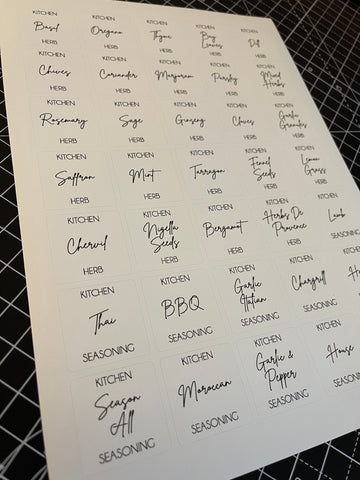 KITCHEN KITCHEN KITCHEN KITCHEN KITCHEN
Basil Oregano Thyme Bay Leaves Dill
HERB HERB HERB HERB HERB
KITCHEN KITCHEN KITCHEN KITCHEN KITCHEN
Chives Coriander Marjoram Parsley Mixed Herbs
HERB HERB HERB HERB HERB
KITCHEN KITCHEN KITCHEN KITCHEN KITCHEN
Rosemary Sage Ginseng Cloves Garlic Granules
HERB HERB HERB HERB HERB
KITCHEN KITCHEN KITCHEN KITCHEN KITCHEN
Saffron Mint Tarragon Fennel Seeds Lemon Grass
HERB HERB HERB HERB HERB
KITCHEN KITCHEN KITCHEN KITCHEN KITCHEN
Chervil Nigella Seeds Bergamot Herbs De Provence Lamb
HERB HERB HERB HERB SEASONING
KITCHEN KITCHEN KITCHEN KITCHEN
Thai BBQ Garlic Italian Chargrill
SEASONING SEASONING SEASONING SEASONING
KITCHEN KITCHEN KITCHEN KITCHEN
Season All Moroccan Garlic & Pepper House
SEASONING SEASONING SEASONING